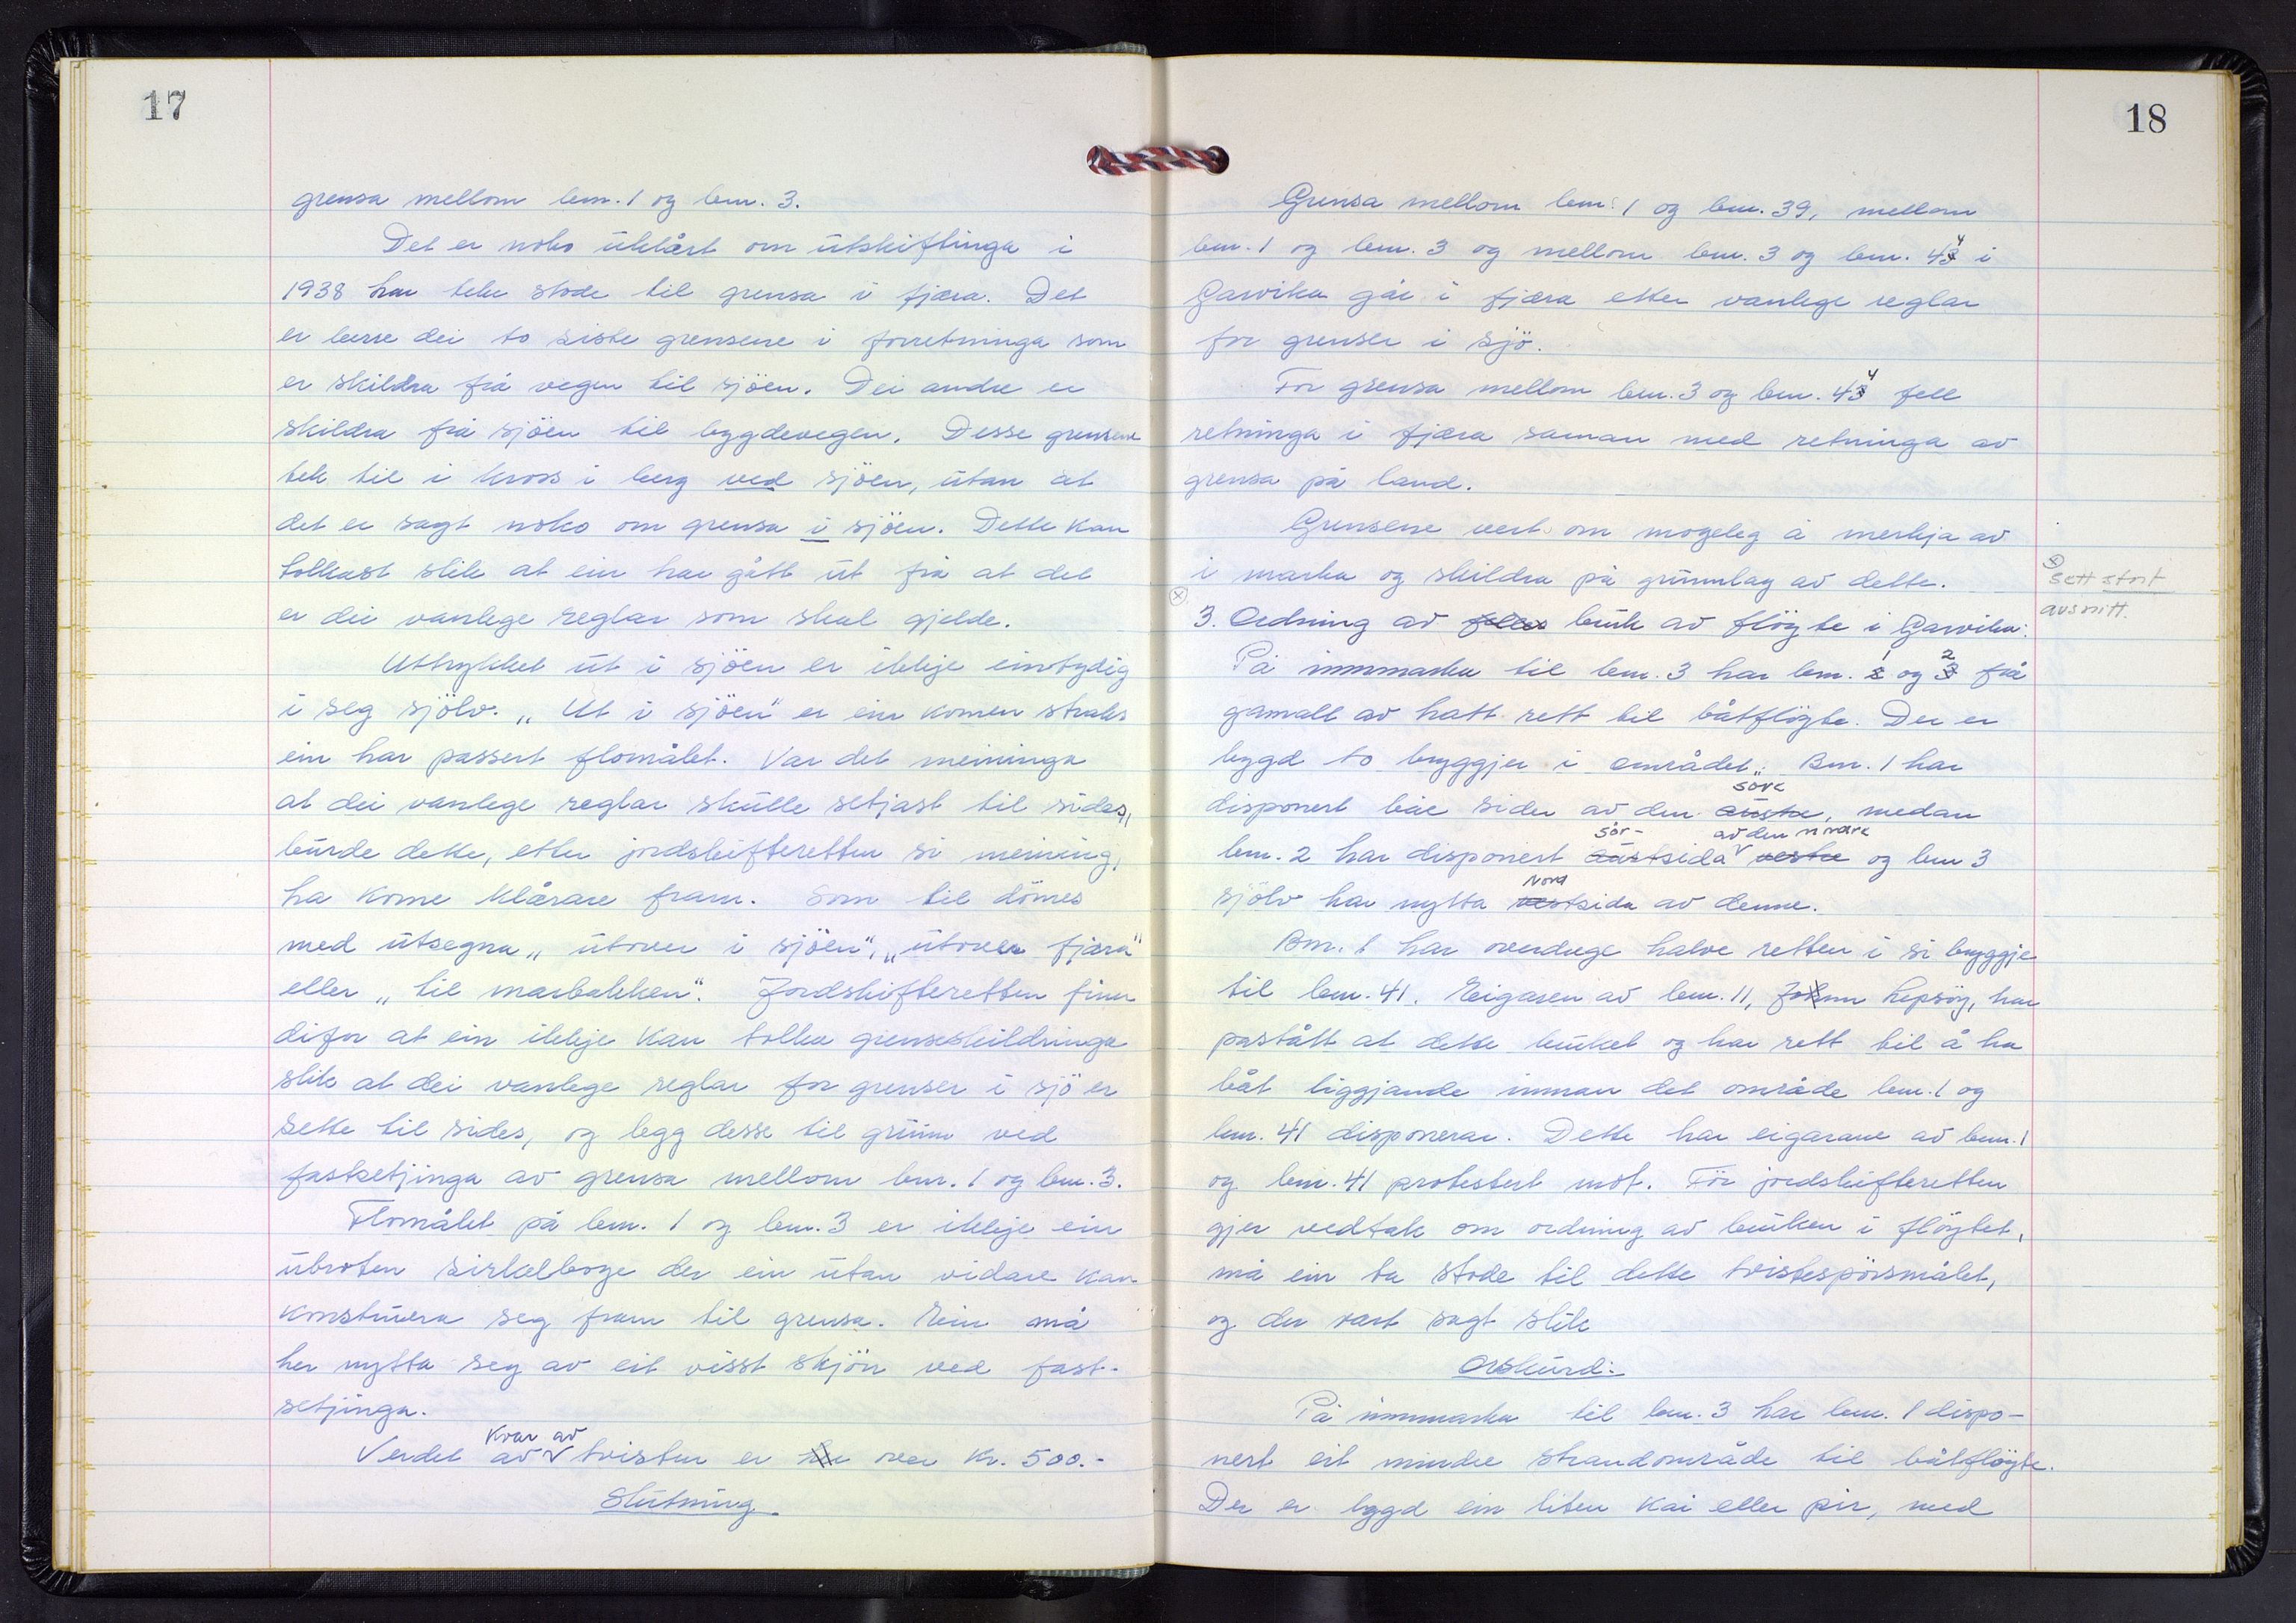 17
grensa mellom bnr. 1 og bnr. 3.
Det er noko uklårt om utskiftinga i
1938 har teke stode til grensa i fjæra. Det
er berre dei to siste grensene i forretninga som
er skildra frå vegen til sjöen. Dei andre er
skildra frå sjöen til bygdevegen. Desse grensene
tek til i kross i berg ved sjöen, utan at
det er sagt noko om grensa i sjöen. Dette kan
tolkast slik at ein har gått ut frå at det
er dei vanlege reglar som skal gjelde.
Uttrykket ut i sjöen er ikkje eintydig
i seg sjölv. „Ut i sjöen" er ein komen straks
ein har passert flomålet. Var det meininga
at dei vanlege reglar skulle setjast til sides,
burde dette, etter jordskifteretten si meining,
ha kome klårare fram. Som til dömes
med utsegna „utover i sjöen", „utover fjæra"
eller „til marbakken". Jordskifteretten finn
difor at ein ikkje kan tolka grenseskildringa
slik at dei vanlege reglar for grenser i sjö er
sette til sides, og legg desse til grunn ved
fastsetjinga av grensa mellom bnr. 1 og bnr. 3.
Flomålet på bnr. 1 og bnr. 3 er ikkje ein
ubroten sirkelboge der ein utan vidare kan
konstruera seg fram til grensa. Ein må
her nytta seg av eit visst skjön ved fast-
setjinga.
kvar av
Verdet av tvisten er over kr. 500.-
Slutning.
18
Grensa mellom bnr. 1 og bnr. 39, mellom
bnr. 1 og bnr. 3 og mellom bnr. 3 og bnr. 44 i
Garvika går i fjæra etter vanlege reglar
for grenser i sjö.
For grensa mellom bnr. 3 og bnr. 44 fell
retninga i fjæra saman med retninga av
grensa på land.
Grensene vert om mogeleg å merkja av
i marka og skildra på grunnlag av dette.
sett stort
avsnitt.
3. Ordning av felles bruk av flöyte i Garvika:
På innmarka til bnr. 3 har bnr. 1 og 2 frå
gamalt av hatt rett til båtflöyte. Der er
bygd to bryggjer i området. Bnr. 1 har
söre
disponert båe sider av den austre, medan
sör- av den nordre
bnr. 2 har disponert austsida vestre og bnr 3
Nord
sjölv har nytta vestsida av denne.
Bnr. 1 har overdrege halve retten i si bryggje
til bnr. 41. Eigaren av bnr. 11, Johnn Lepsöy, har
påstått at dette bruket og har rett til å ha
båt liggjande innan det område bnr. 1 og
bnr. 41 disponerar. Dette har eigarane av bnr. 1
og bnr. 41 protestert mot. För jordskifteretten
gjer vedtak om ordning av bruken i flöytet,
må ein ta stode til dette tvistespörsmålet,
og der vart sagt slik
Orskurd:
På innmarka til bnr. 3 har bnr. 1 dispo-
nert eit mindre strandområde til båtflöyte.
Der er bygd ein liten kai eller pir, med